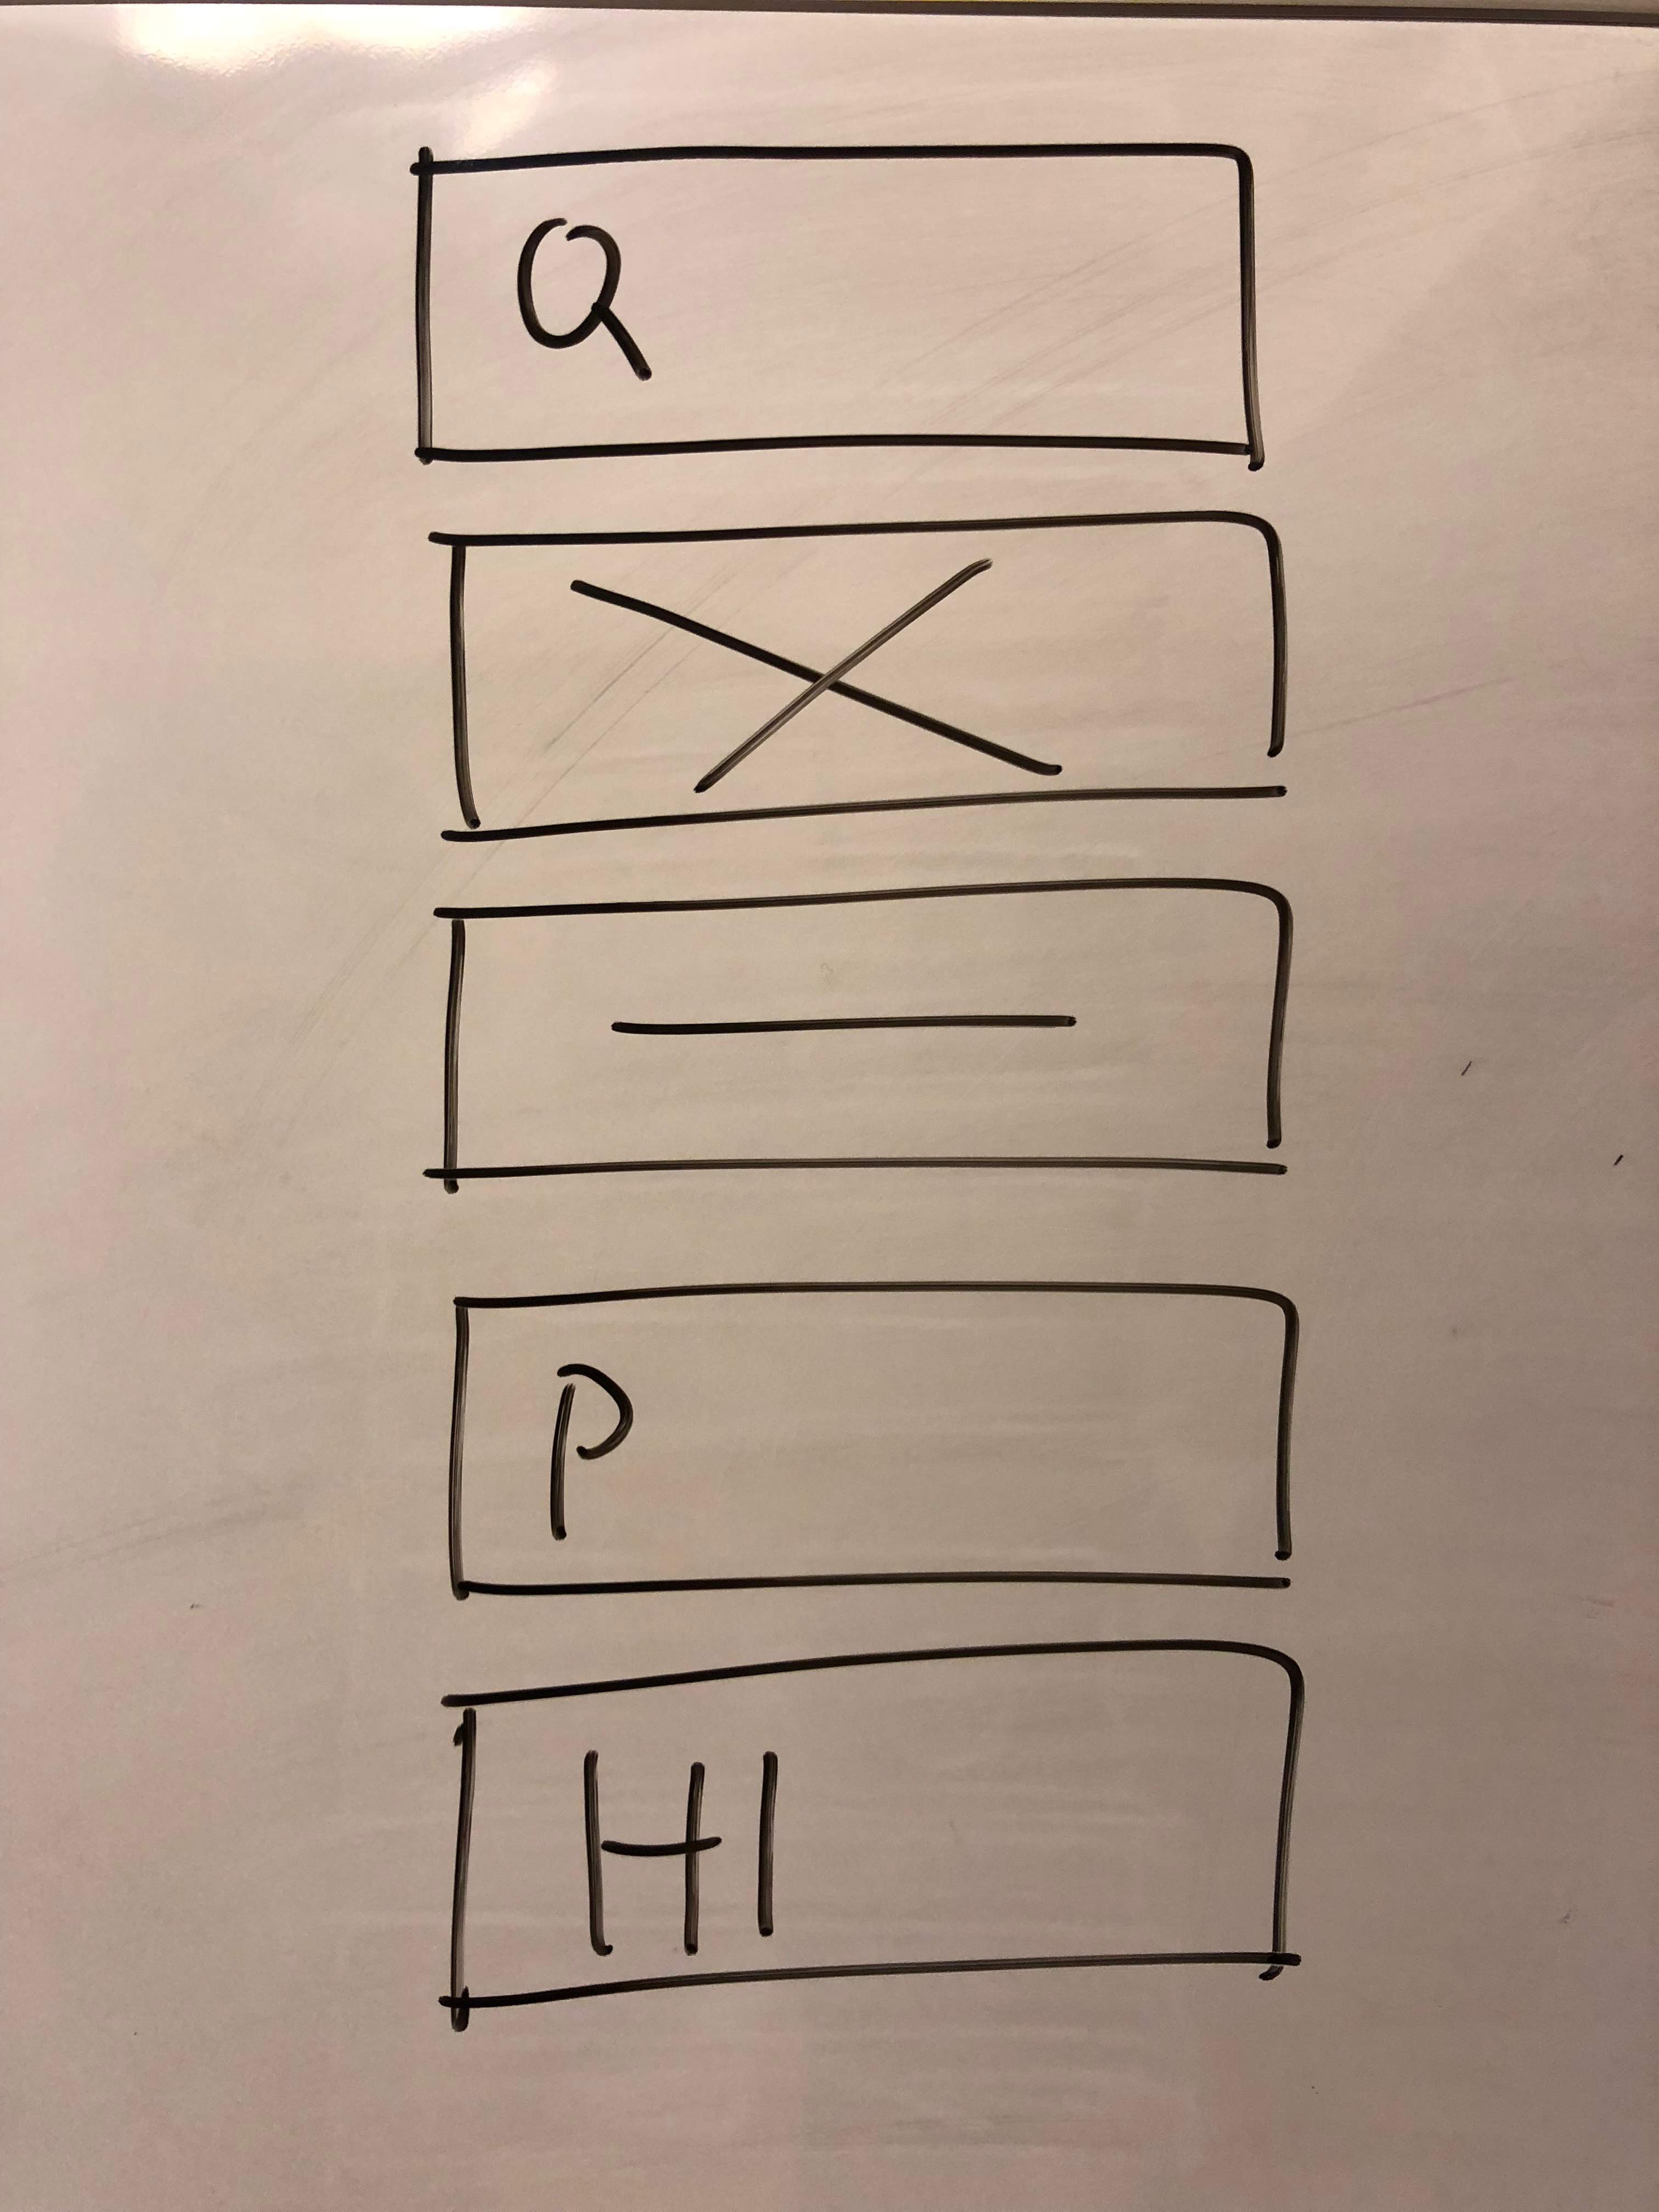 Q
X
—
P
H1